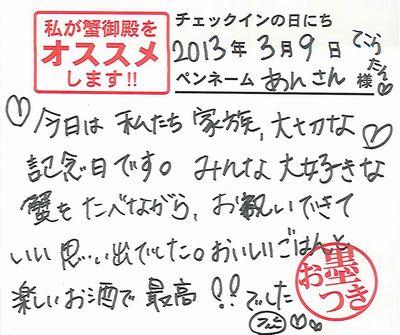 私が蟹御殿を
オススメ
します!!
チェックインの日にち
2013年3月9日
ペンネーム あんさん 様
♡今日は 私たち 家族、大切な♡
記念日です。みんな 大好きな
蟹を たべながら、お祝いできて
いい 思い出でした。おいしいごはんと
楽しいお酒で 最高!!でした
お墨つき